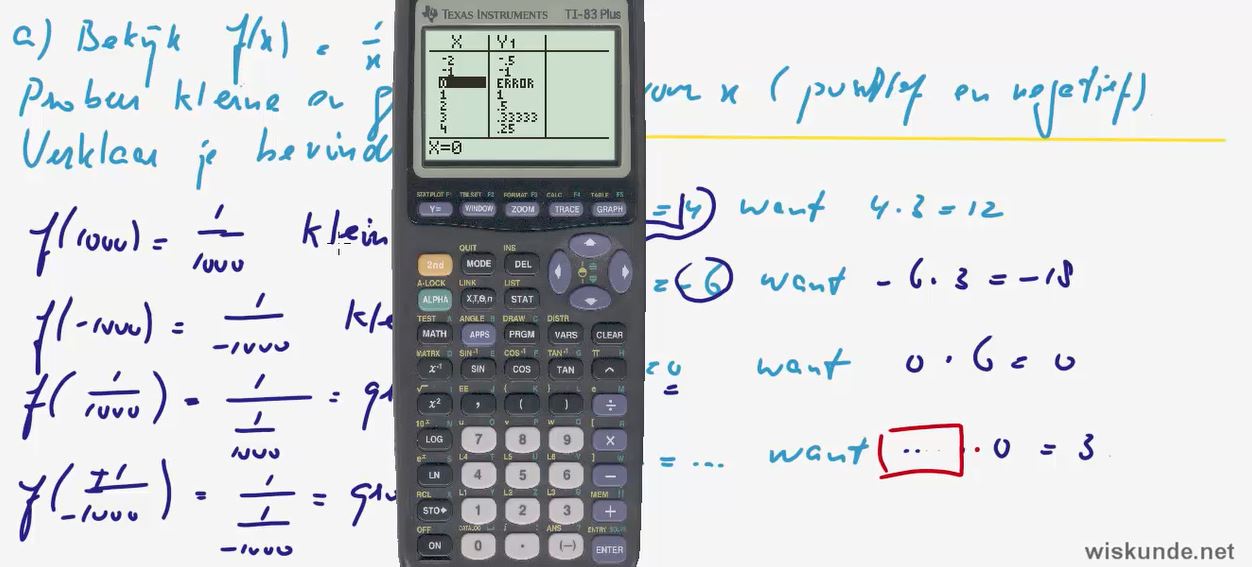 a) Bekijk f(x) = 1/x
Proben kleine en g voor x (positief en negatief)
Verklaar je bevind
f(1000) = 1/1000 klein
= 4 want 4 · 3 = 12
f(-1000) = 1/-1000 kle
= -6 want -6 · 3 = -18
f(1/1000) = 1/(1/1000) = gro
= 0 want 0 · 6 = 0
= ... want ... · 0 = 3
= 1/(1/-1000) = gro
TEXAS INSTRUMENTS TI-83 Plus
X Y1
-2 -.5
-1 -1
0 ERROR
1 1
2 .5
3 .33333
4 .25
X=0
STAT PLOT F1 TBLSET F2 FORMAT F3 CALC F4 TABLE F5
Y= WINDOW ZOOM TRACE GRAPH
QUIT INS
2nd MODE DEL
A-LOCK LINK LIST
ALPHA X,T,Θ,n STAT
TEST A ANGLE B DRAW C DISTR
MATH APPS PRGM VARS CLEAR
MATRX D SIN⁻¹ E COS⁻¹ F TAN⁻¹ G π H
x⁻¹ SIN COS TAN ^
√ I EE J { K } L e M
x² , ( ) ÷
10ˣ N u O v P w Q [ R
LOG 7 8 9 ×
eˣ S L4 T L5 U L6 V ] W
LN 4 5 6 −
RCL X L1 Y L2 Z L3 θ MEM "
STO► 1 2 3 +
OFF CATALOG i : ANS ? ENTRY SOLVE
ON 0 . (−) ENTER
wiskunde.net